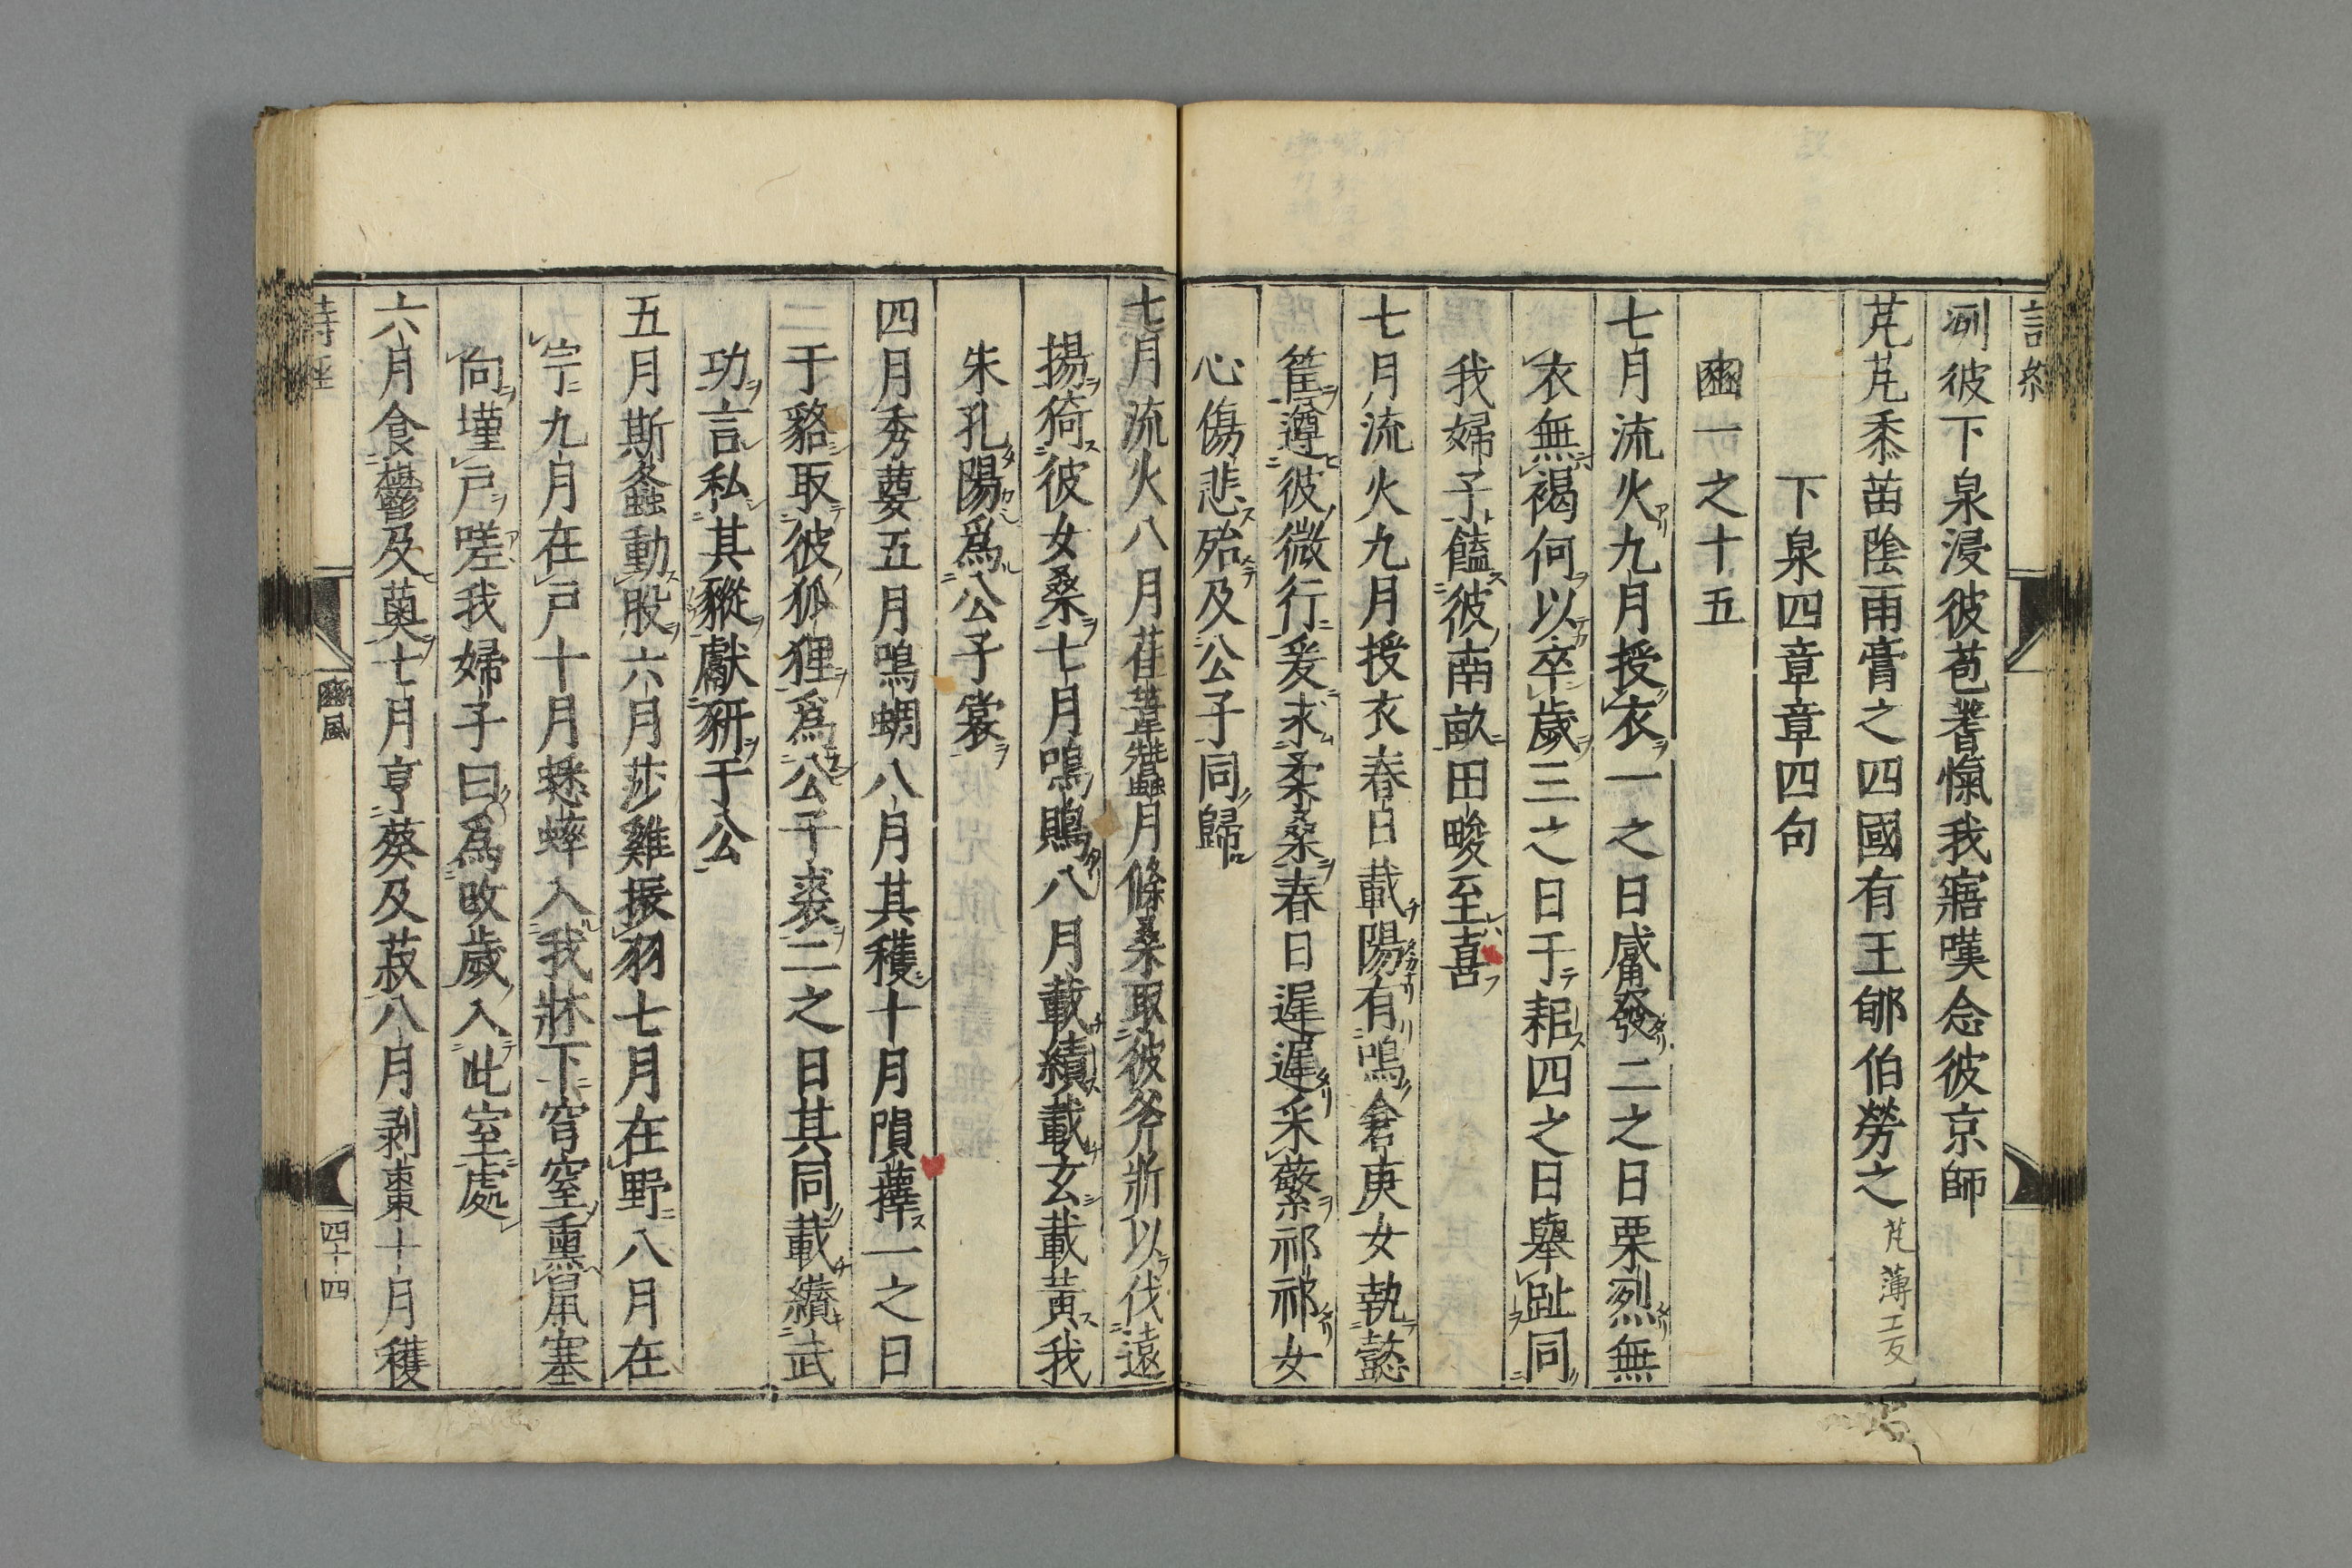 洌彼下泉浸彼苞蓍愾我寤嘆念彼京師
芃芃黍苗陰雨膏之四國有王郇伯勞之芃薄工反
下泉四章章四句
豳一之十五
七月流火九月授衣一之日觱發二之日栗烈無
衣無褐何以卒歲三之日于耜四之日舉趾同
我婦子饁彼南畝田畯至喜
七月流火九月授衣春日載陽有鳴倉庚女執懿
筐遵彼微行爰求柔桑春日遲遲采蘩祁祁女
心傷悲殆及公子同歸
七月流火八月萑葦蠶月條桑取彼斧斨以伐遠
揚猗彼女桑七月鳴鵙八月載績載玄載黃我
朱孔陽爲公子裳
四月秀葽五月鳴蜩八月其穫十月隕蘀一之日
于貉取彼狐狸爲公子裘二之日其同載纘武
功言私其豵獻豜于公
五月斯螽動股六月莎雞振羽七月在野八月在
宇九月在戶十月蟋蟀入我牀下穹窒熏鼠塞
向墐戶嗟我婦子曰爲改歲入此室處
六月食鬱及薁七月亨葵及菽八月剥棗十月穫
豳風
四十四